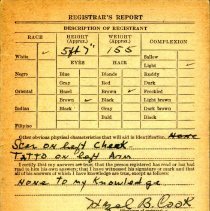 REGISTRAR'S REPORT
DESCRIPTION OF REGISTRANT
RACE HEIGHT (Approx.) WEIGHT (Approx.) COMPLEXION
5ft 7" 155
White ✓ Sallow
EYES HAIR Light ✓
Negro Blue Blonde Ruddy
Gray Red Dark
Oriental Hazel ✓ Brown ✓ Freckled
Brown Black Light brown
Indian Black Gray Dark brown
Bald Black
Filipino
Other obvious physical characteristics that will aid in identification None
Scar on Left Cheek
Tatto on left Arm
I certify that my answers are true; that the person registered has read or has had
read to him his own answers; that I have witnessed his signature or mark and that
all of his answers of which I have knowledge are true, except as follows:
None to my Knowledge
B. Cook